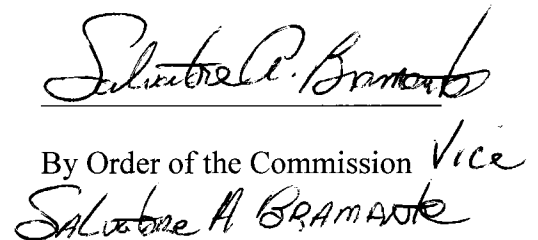 Salvatore A. Bramante
By Order of the Commission Vice
Salvatore A Bramante